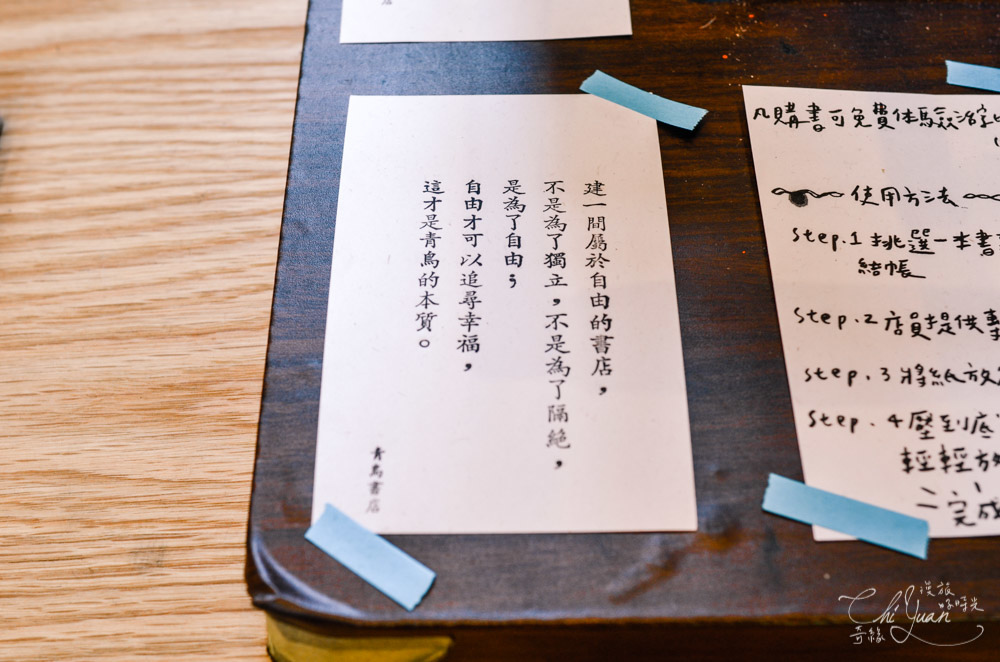 店
建一間屬於自由的書店，
不是為了獨立，不是為了隔絕，
是為了自由；
自由才可以追尋幸福，
這才是青鳥的本質。
青鳥書店
凡購書可免費体驗活字
使用方法
Step.1 挑選一本書
結帳
Step.2 店員提供
Step.3 將紙放
Step.4 壓到底
輕輕放
完成
漫旅
好時光
Chi Yuan
奇緣